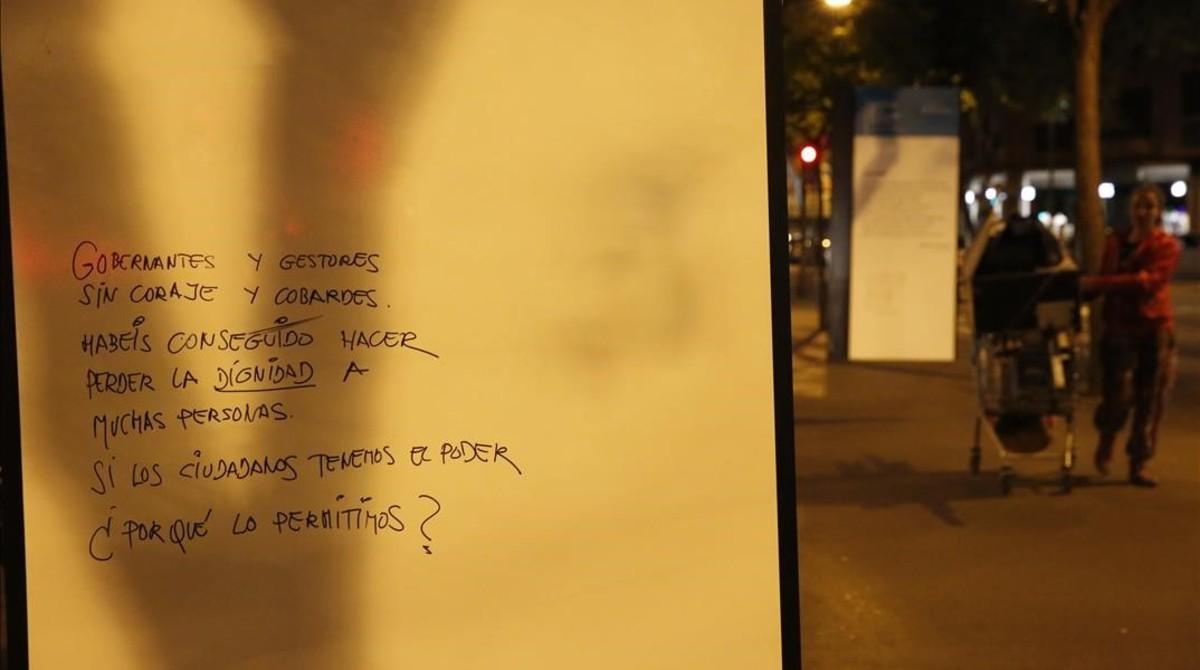 GOBERNANTES Y GESTORES
SIN CORAJE Y COBARDES.
HABEÍS CONSEGUIDO HACER
PERDER LA DIGNIDAD A
MUCHAS PERSONAS.
SI LOS CIUDADANOS TENEMOS EL PODER
¿PORQUÉ LO PERMITIMOS?